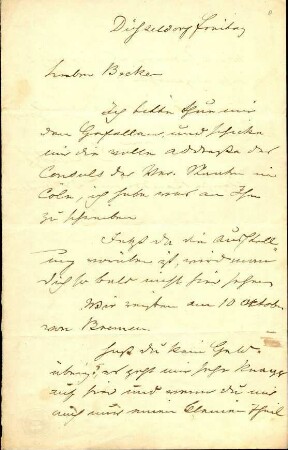 Düsseldorf Freitag
Lieber Becker
Ich bitte thue mir
den Gefallen und schicke
mir die volle Addresse des
Consuls der Ver. Staaten in
Cöln, ich habe was an Ihn
zu schreiben
Jetzt da die Ausstell=
ung vorüber ist, wird man
dich so bald nicht hier sehen
Wir reisen am 10 Oktober
von Bremen
Hast du kein Geld
übrig? es geht mir sehr knapp
auf hier und wenn du mir
auch nur einen kleinen Theil